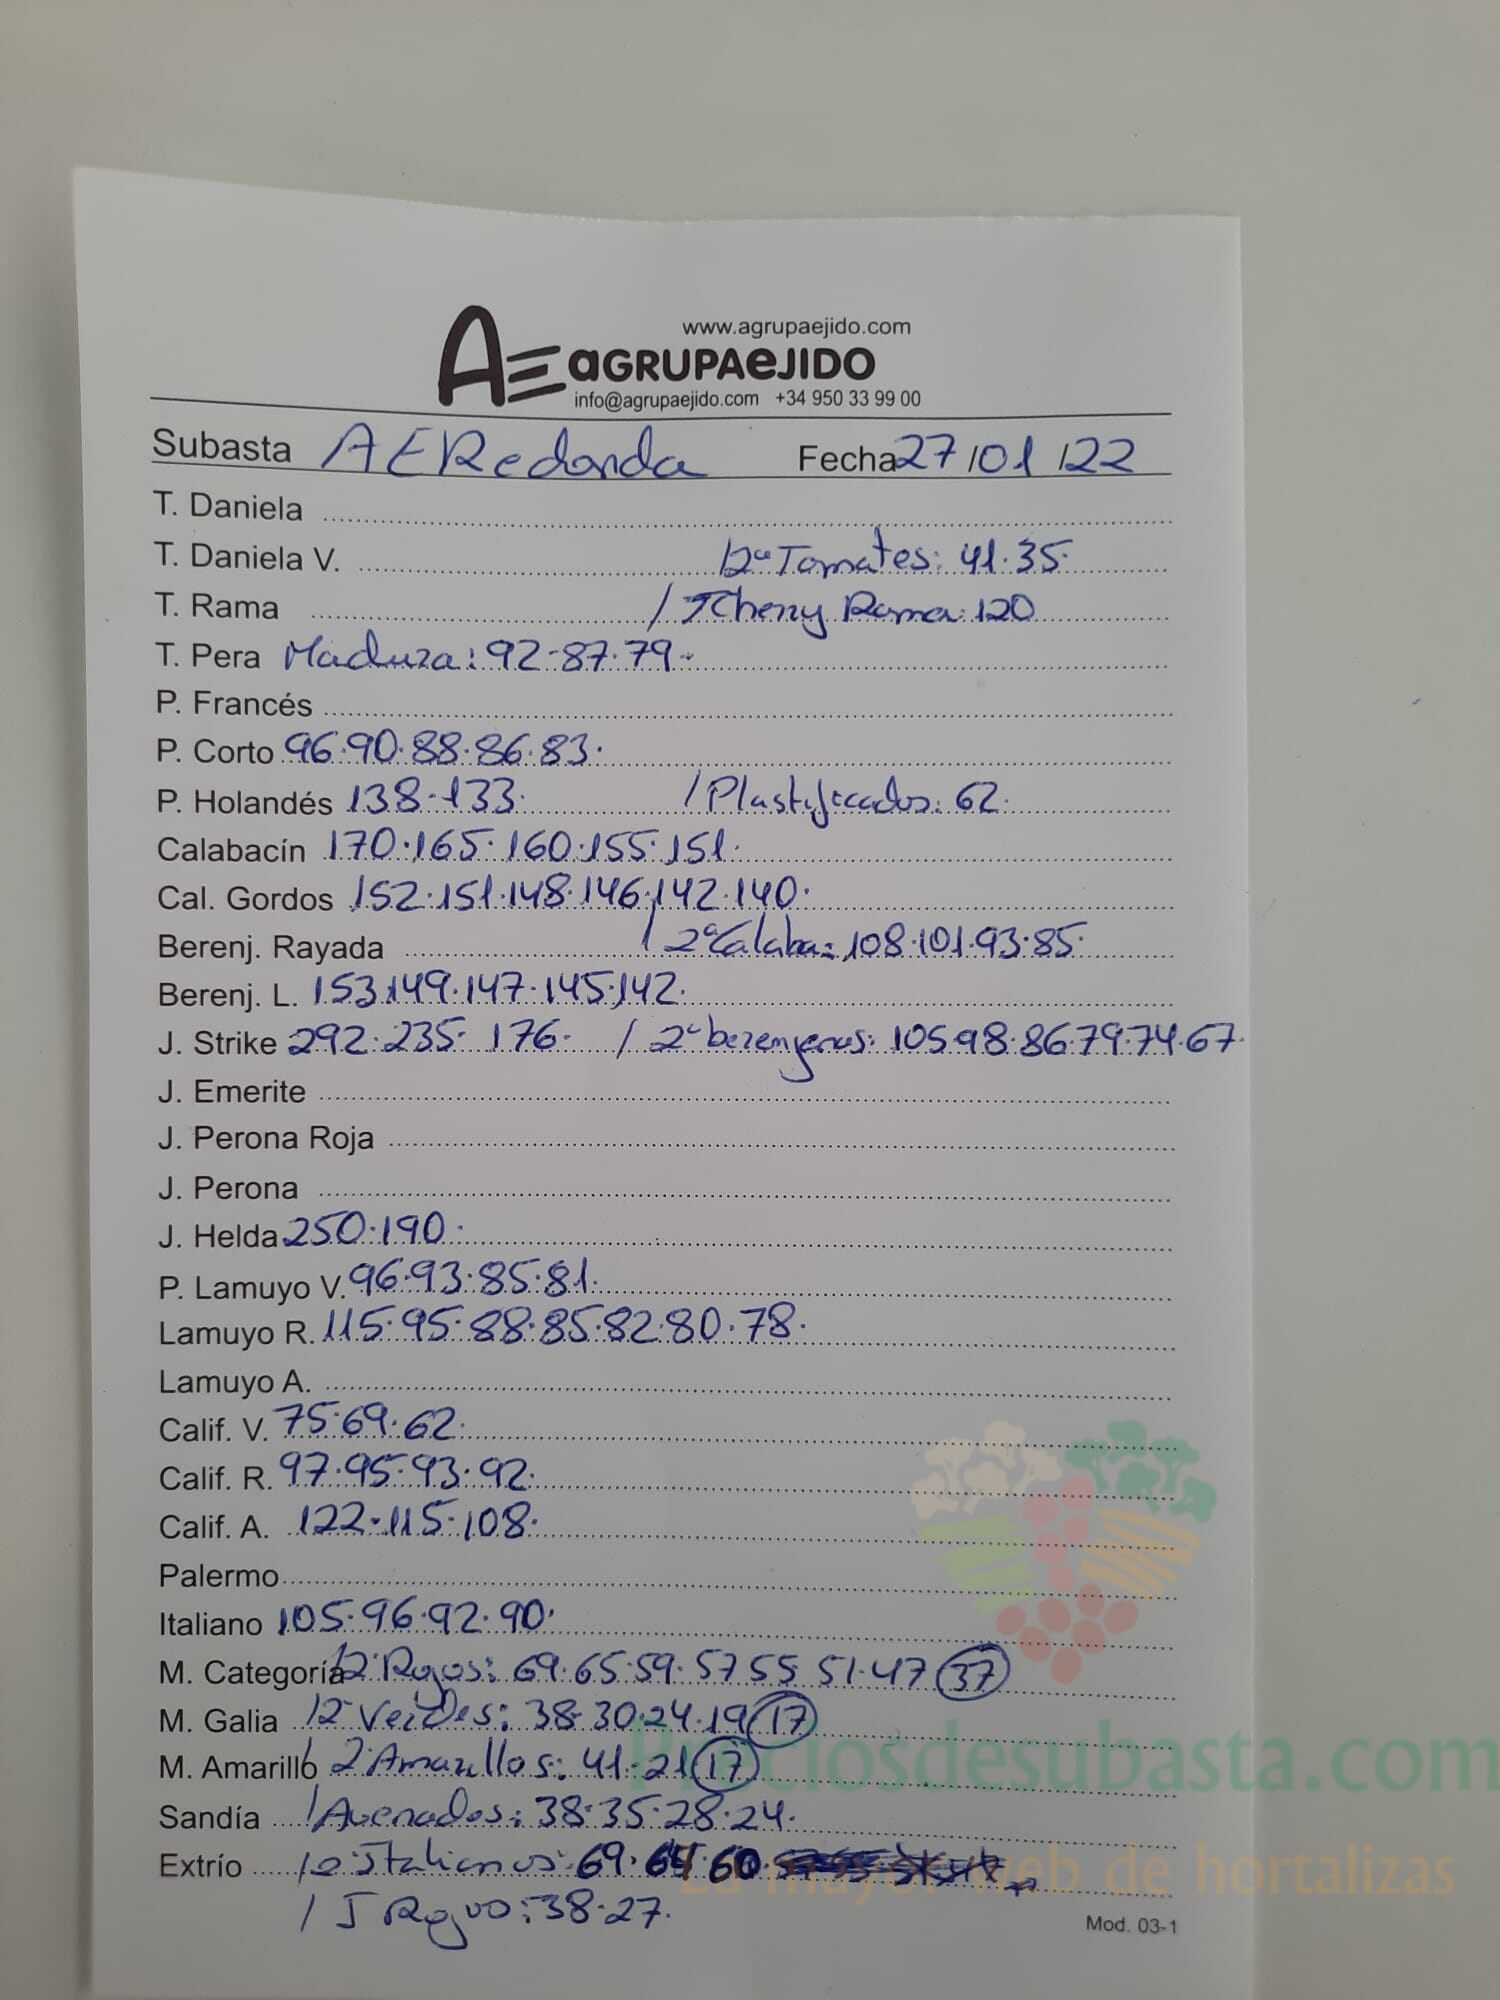 www.agrupaejido.com
AE aGRUPAeJIDO
info@agrupaejido.com +34 950 33 99 00
Subasta AERedonda Fecha 27/01/22
T. Daniela
T. Daniela V. /2ª Tomates: 41·35·
T. Rama / TCherry Rama: 120
T. Pera Madura: 92·87·79·
P. Francés
P. Corto 96·90·88·86·83·
P. Holandés 138·133· / Plastificados: 62·
Calabacín 170·165·160·155·151·
Cal. Gordos 152·151·148·146·142·140·
Berenj. Rayada / 2ª Calaba: 108·101·93·85·
Berenj. L. 153·149·147·145·142·
J. Strike 292·235·176· / 2ª berenjenas: 105·98·86·79·74·67·
J. Emerite
J. Perona Roja
J. Perona
J. Helda 250·190·
P. Lamuyo V. 96·93·85·81·
Lamuyo R. 115·95·88·85·82·80·78·
Lamuyo A.
Calif. V. 75·69·62·
Calif. R. 97·95·93·92·
Calif. A. 122·115·108·
Palermo
Italiano 105·96·92·90·
M. Categoría /2ª Rojos: 69·65·59·57·55·51·47 37
M. Galia /2ª Verdes: 38·30·24·19 17
M. Amarillo / 2ª Amarillos: 41·21 17
Sandía / Avenados: 38·35·28·24·
Extrío / Italianos: 69·64·60·
/ J Rojo: 38·27·
Mod. 03-1
Preciosdesubasta.com
La mayor web de hortalizas